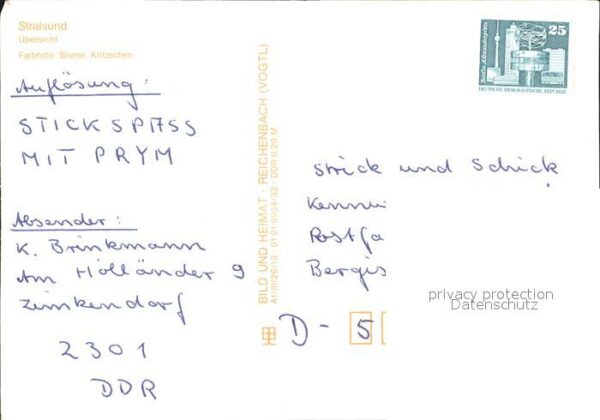 Stralsund
Übersicht
Farbfoto: Blume, Klitzschen
Auflösung:
STICKSPASS
MIT PRYM
Absender:
K. Brinkmann
Am Holländer 9
Zimkendorf
2301
DDR
BILD UND HEIMAT · REICHENBACH (VOGTL)
A1/III/26/13 · 01 01 01 24/32 · DDR 0,20 M
25
Berlin, Alexanderplatz
DEUTSCHE DEMOKRATISCHE REPUBLIK
Strick und Schick
Postfa
Bergis
D - 5
privacy protection
Datenschutz